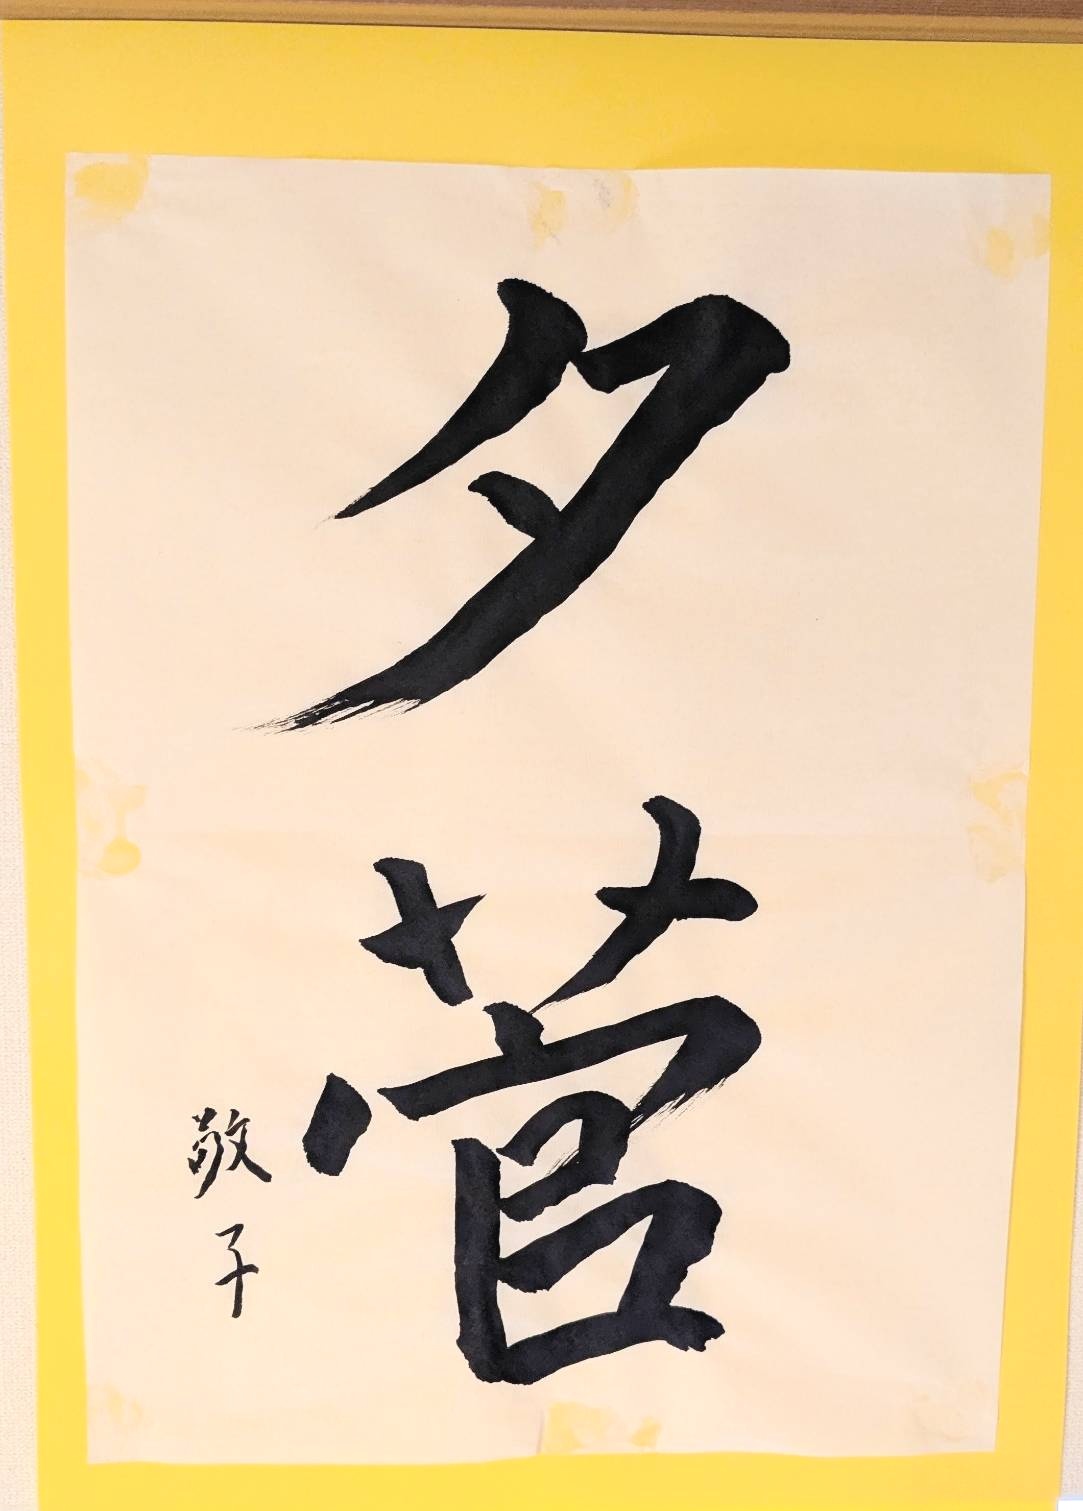 夕菅
敬子